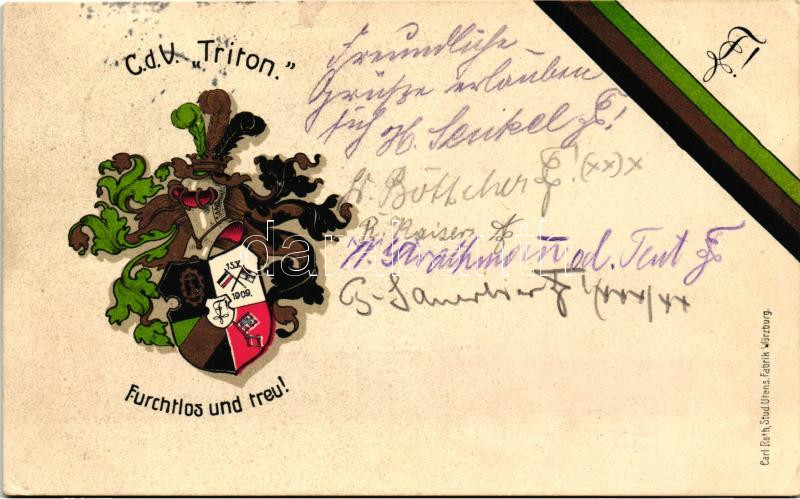 C.d.V. „Triton."
Freundliche
Grüße erlauben
sich H. Senkel
W. Böttcher (xx)x
R. Kaiser
ad. Tent
G. Sauerbier (xxx/xx
15.X.
1909.
Furchtlos und treu!
Carl Roth, Stud. Utens. Fabrik Würzburg.
darabanth